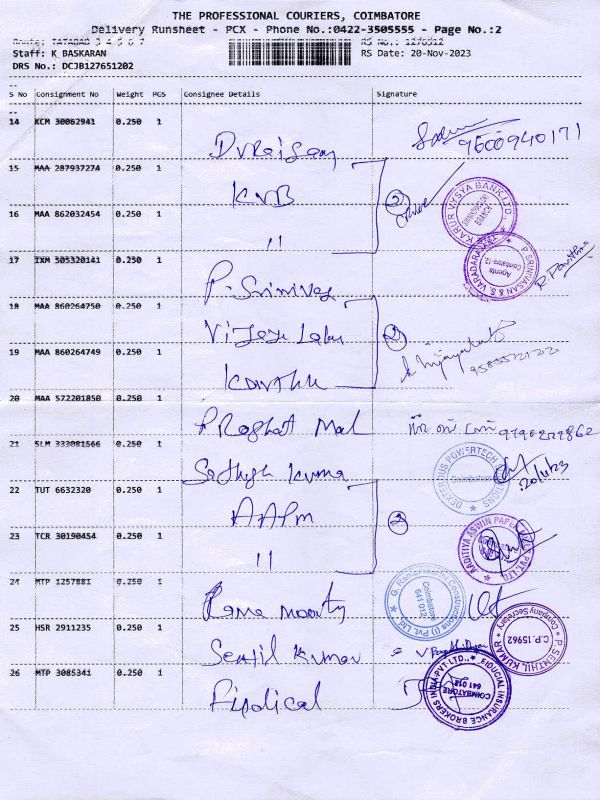 THE PROFESSIONAL COURIERS, COIMBATORE
Delivery Runsheet - PCX - Phone No.:0422-3505555 - Page No.:2
Route: TATABAD 3 4 5 6 7 RS No.: 1276512
Staff: K BASKARAN RS Date: 20-Nov-2023
DRS No.: DCJB127651202
S No Consignment No Weight PCS Consignee Details Signature
14 KCM 30062941 0.250 1 Duraisamy 9600940171
15 MAA 287937274 0.250 1 KVB 2 KARUR VYSYA BANK LTD. BRANCH
16 MAA 862032454 0.250 1 "
17 IXM 305320141 0.250 1 P. Srinivas P. SRINIVASAN & S. VARADARAJAN Agents Coimbatore-12
18 MAA 860264750 0.250 1 Vijaya Labu 2
19 MAA 860264749 0.250 1 9585572122
20 MAA 572201850 0.250 1 Mal
21 SLM 333081566 0.250 1 Sathish Kumar DEXTEROUS POWERTECH SOLUTIONS Coimbatore 20/11/23
22 TUT 6632320 0.250 1 AAPM 2
23 TCR 30190454 0.250 1 " AADITIYA ASWIN PAPER PVT. LTD.
24 MTP 1257881 0.250 1 Rama moorty G. Ramamoorthi Constructions (I) Pvt. Ltd. Coimbatore 641 012
25 HSR 2911235 0.250 1 Senthil Kumar P. SENTHIL KUMAR C.P. 15962 Company Secretary
26 MTP 3085341 0.250 1 FIDUCIAL INSURANCE BROKERS INDIA PVT LTD., COIMBATORE 641 018